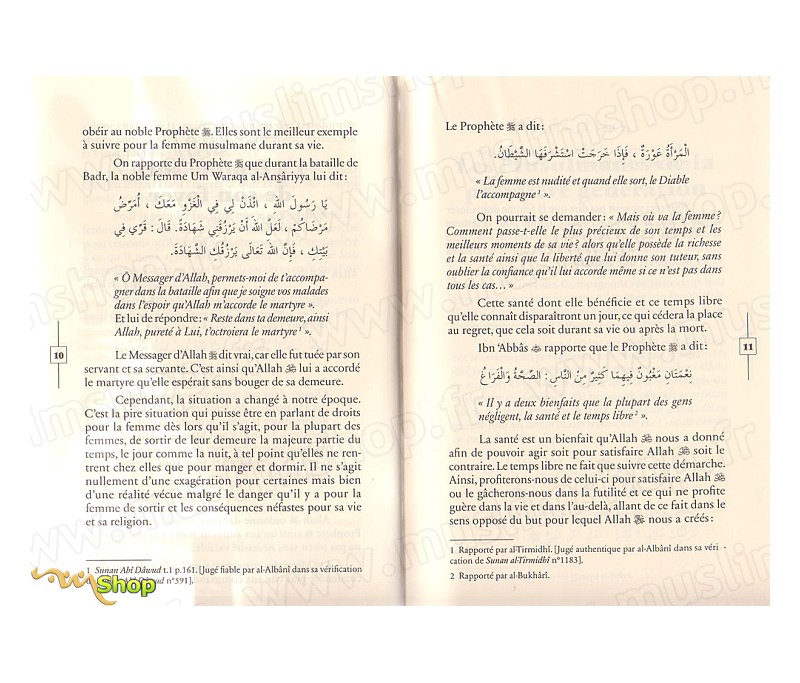 obéir au noble Prophète ﷺ. Elles sont le meilleur exemple
à suivre pour la femme musulmane durant sa vie.
On rapporte du Prophète ﷺ que durant la bataille de
Badr, la noble femme Um Waraqa al-Anṣâriyya lui dit :
يَا رَسُولَ الله ، ائْذَنْ لِي فِي الْغَزْوِ مَعَكَ ، أُمَرِّضُ
مَرْضَاكُمْ ، لَعَلَّ اللهَ أَنْ يَرْزُقَنِي شَهَادَةً. قَالَ : قَرِّي فِي
بَيْتِكِ ، فَإِنَّ اللهَ تَعَالَى يَرْزُقُكِ الشَّهَادَةَ.
« Ô Messager d'Allah, permets-moi de t'accompa-
gner dans la bataille afin que je soigne vos malades
dans l'espoir qu'Allah m'accorde le martyre ».
Et lui de répondre : « Reste dans ta demeure, ainsi
Allah, pureté à Lui, t'octroiera le martyre¹ ».
Le Messager d'Allah ﷺ dit vrai, car elle fut tuée par son
servant et sa servante. C'est ainsi qu'Allah ﷻ lui a accordé
le martyre qu'elle espérait sans bouger de sa demeure.
Cependant, la situation a changé à notre époque.
C'est la pire situation qui puisse être en parlant de droits
pour la femme dès lors qu'il s'agit, pour la plupart des
femmes, de sortir de leur demeure la majeure partie du
temps, le jour comme la nuit, à tel point qu'elles ne ren-
trent chez elles que pour manger et dormir. Il ne s'agit
nullement d'une exagération pour certaines mais bien
d'une réalité vécue malgré le danger qu'il y a pour la
femme de sortir et les conséquences néfastes pour sa vie
et sa religion.
1 Sunan Abî Dâwud t.1 p.161. [Jugé fiable par al-Albânî dans sa vérification
n°591].
10
Le Prophète ﷺ a dit :
الْمَرْأَةُ عَوْرَةٌ ، فَإِذَا خَرَجَتْ اسْتَشْرَفَهَا الشَّيْطَانُ.
« La femme est nudité et quand elle sort, le Diable
l'accompagne¹ ».
On pourrait se demander : « Mais où va la femme ?
Comment passe-t-elle le plus précieux de son temps et les
meilleurs moments de sa vie ? alors qu'elle possède la richesse
et la santé ainsi que la liberté que lui donne son tuteur, sans
oublier la confiance qu'il lui accorde même si ce n'est pas dans
tous les cas… »
Cette santé dont elle bénéficie et ce temps libre
qu'elle connaît disparaîtront un jour, ce qui cédera la place
au regret, que cela soit durant sa vie ou après la mort.
Ibn 'Abbâs rapporte que le Prophète ﷺ a dit :
نِعْمَتَانِ مَغْبُونٌ فِيهِمَا كَثِيرٌ مِنْ النَّاسِ : الصِّحَّةُ وَالْفَرَاغُ
« Il y a deux bienfaits que la plupart des gens
négligent, la santé et le temps libre² ».
La santé est un bienfait qu'Allah ﷻ nous a donné
afin de pouvoir agir soit pour satisfaire Allah ﷻ soit
le contraire. Le temps libre ne fait que suivre cette démarche.
Ainsi, profiterons-nous de celui-ci pour satisfaire Allah ﷻ
ou le gâcherons-nous dans la futilité et ce qui ne profite
guère dans la vie et dans l'au-delà, allant de ce fait dans le
sens opposé du but pour lequel Allah ﷻ nous a créés :
1 Rapporté par al-Tirmidhî. [Jugé authentique par al-Albânî dans sa véri-
cation de Sunan al-Tirmidhî n°1183].
2 Rapporté par al-Bukhârî.
11
www.muslimshop.fr
Shop